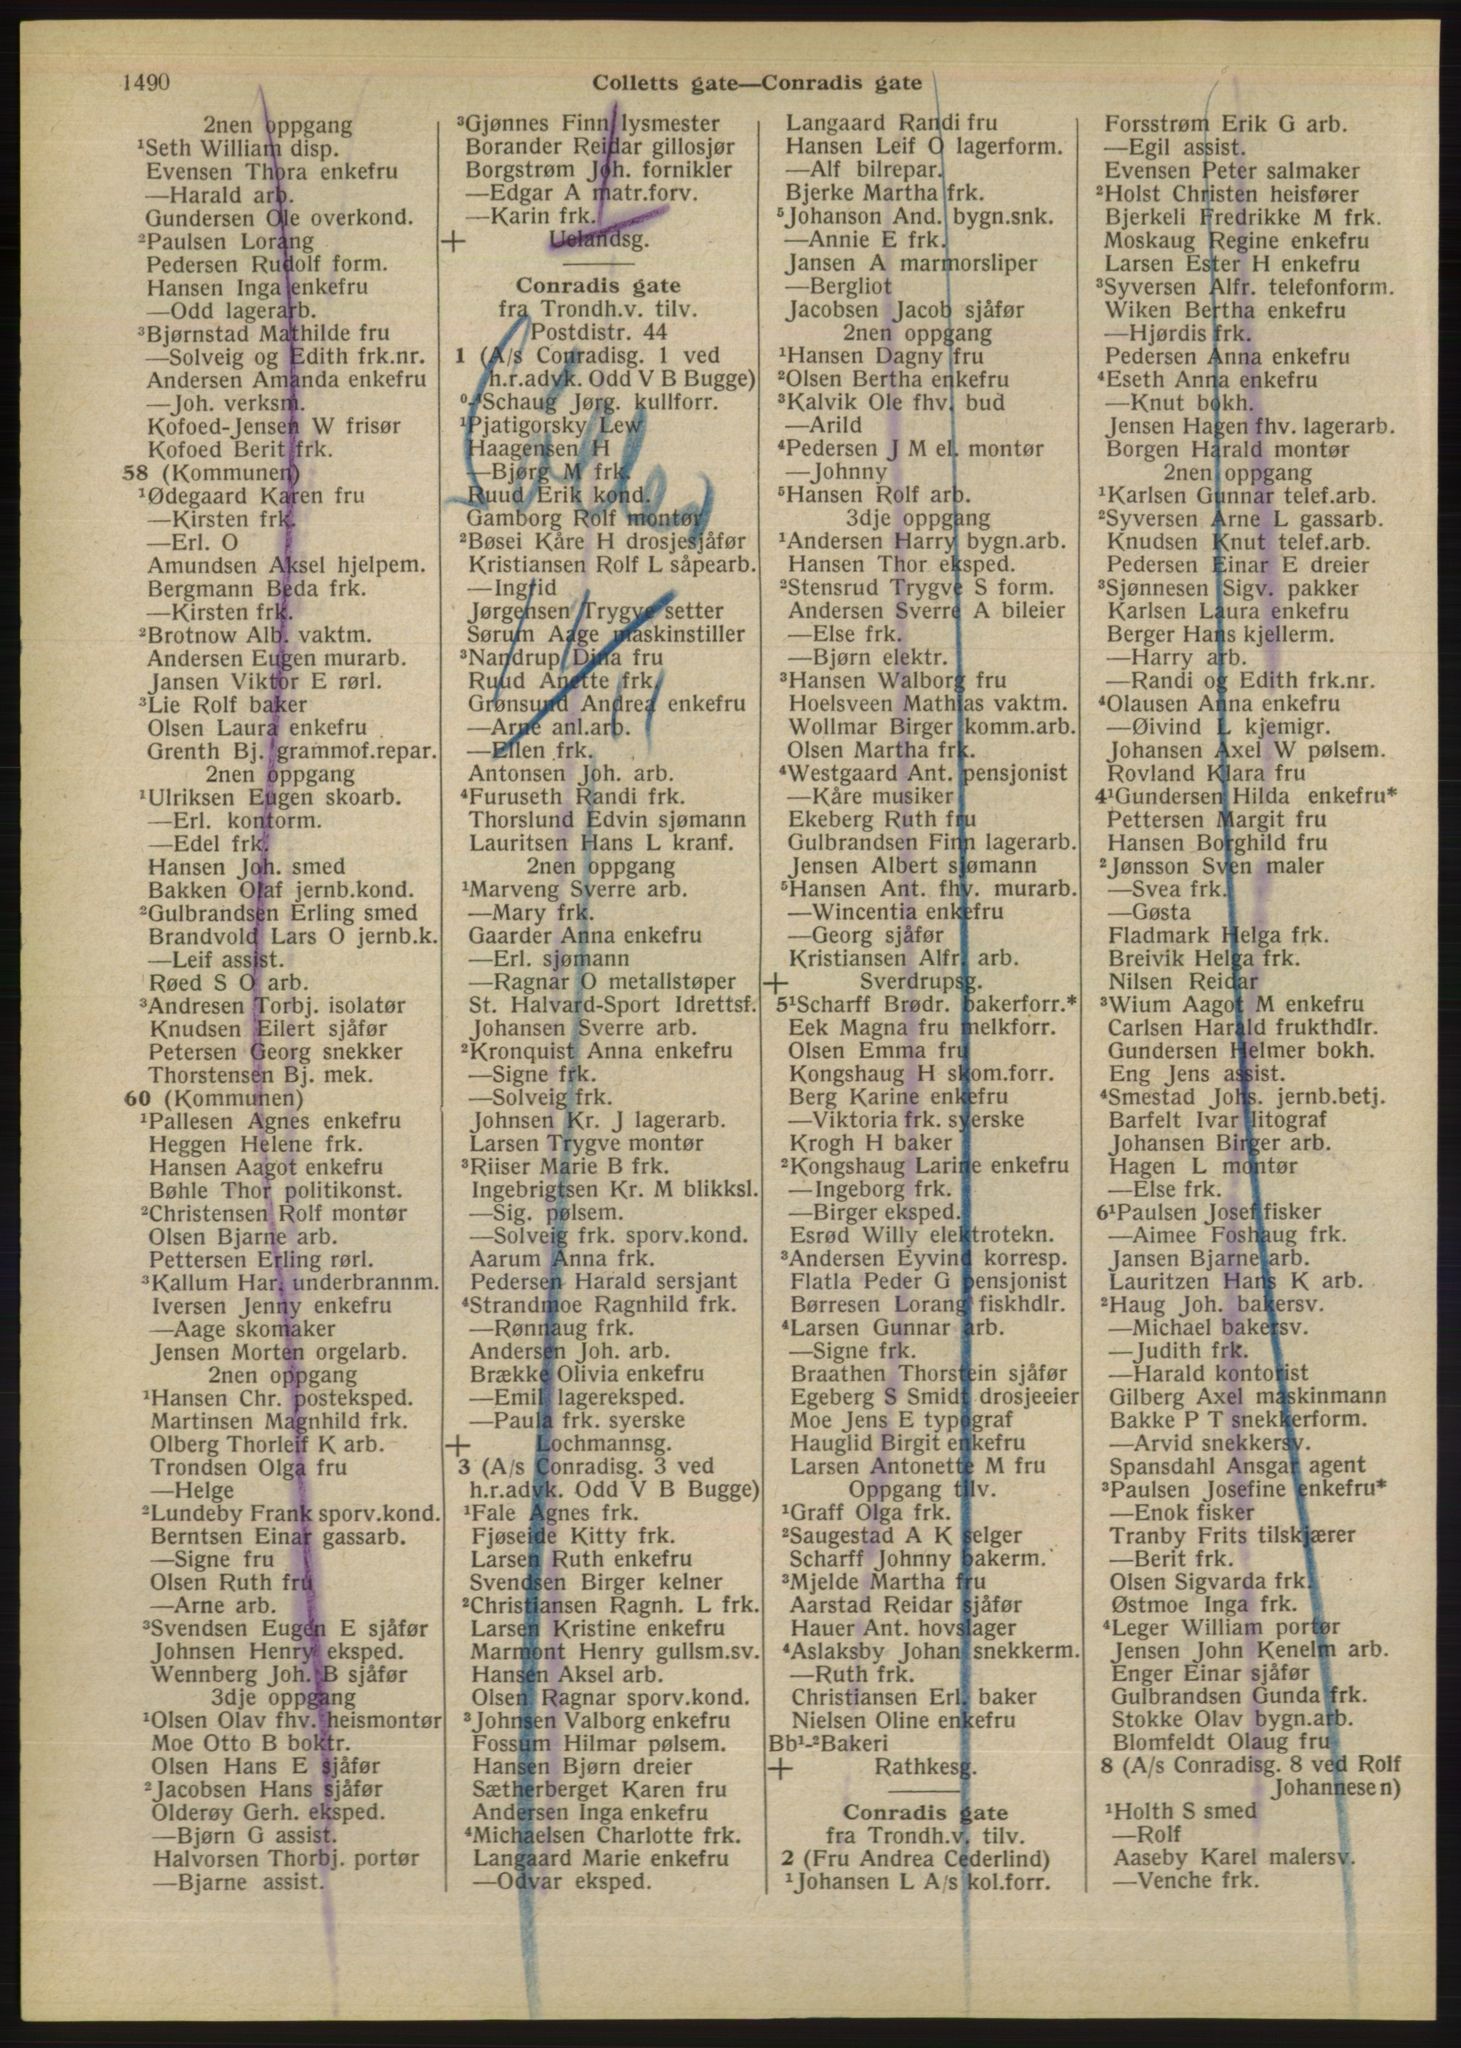 1490
Colletts gate—Conradis gate
2nen oppgang
¹Seth William disp.
Evensen Thora enkefru
—Harald arb.
Gundersen Ole overkond.
²Paulsen Lorang
Pedersen Rudolf form.
Hansen Inga enkefru
—Odd lagerarb.
³Bjørnstad Mathilde fru
—Solveig og Edith frk.nr.
Andersen Amanda enkefru
—Joh. verksm.
Kofoed-Jensen W frisør
Kofoed Berit frk.
58 (Kommunen)
¹Ødegaard Karen fru
—Kirsten frk.
—Erl. O
Amundsen Aksel hjelpem.
Bergmann Beda frk.
—Kirsten frk.
²Brotnow Alb. vaktm.
Andersen Eugen murarb.
Jansen Viktor E rørl.
³Lie Rolf baker
Olsen Laura enkefru
Grenth Bj. grammof.repar.
2nen oppgang
¹Ulriksen Eugen skoarb.
—Erl. kontorm.
—Edel frk.
Hansen Joh. smed
Bakken Olaf jernb.kond.
²Gulbrandsen Erling smed
Brandvold Lars O jernb.k.
—Leif assist.
Røed S O arb.
³Andresen Torbj. isolatør
Knudsen Eilert sjåfør
Petersen Georg snekker
Thorstensen Bj. mek.
60 (Kommunen)
¹Pallesen Agnes enkefru
Heggen Helene frk.
Hansen Aagot enkefru
Bøhle Thor politikonst.
²Christensen Rolf montør
Olsen Bjarne arb.
Pettersen Erling rørl.
³Kallum Har. underbrannm.
Iversen Jenny enkefru
—Aage skomaker
Jensen Morten orgelarb.
2nen oppgang
¹Hansen Chr. posteksped.
Martinsen Magnhild frk.
Olberg Thorleif K arb.
Trondsen Olga fru
—Helge
²Lundeby Frank sporv.kond.
Berntsen Einar gassarb.
—Signe fru
Olsen Ruth fru
—Arne arb.
³Svendsen Eugen E sjåfør
Johnsen Henry eksped.
Wennberg Joh. B sjåfør
3dje oppgang
¹Olsen Olav fhv. heismontør
Moe Otto B boktr.
Olsen Hans E sjåfør
²Jacobsen Hans sjåfør
Olderøy Gerh. eksped.
—Bjørn G assist.
Halvorsen Thorbj. portør
—Bjarne assist.
³Gjønnes Finn lysmester
Borander Reidar gillosjør
Borgstrøm Joh. fornikler
—Edgar A matr.forv.
—Karin frk.
+ Uelandsg.
Conradis gate
fra Trondh.v. tilv.
Postdistr. 44
1 (A/s Conradisg. 1 ved
h.r.advk. Odd V B Bugge)
⁰-¹Schaug Jørg. kullforr.
¹Pjatigorsky Lew
Haagensen H
—Bjørg M frk.
Ruud Erik kond.
Gamborg Rolf montør
²Bøsei Kåre H drosjesjåfør
Kristiansen Rolf L såpearb.
—Ingrid
Jørgensen Trygve setter
Sørum Aage maskinstiller
³Nandrup Dina fru
Ruud Anette frk.
Grønsund Andrea enkefru
—Arne anl.arb.
—Ellen frk.
Antonsen Joh. arb.
⁴Furuseth Randi frk.
Thorslund Edvin sjømann
Lauritsen Hans L kranf.
2nen oppgang
¹Marveng Sverre arb.
—Mary frk.
Gaarder Anna enkefru
—Erl. sjømann
—Ragnar O metallstøper
St. Halvard-Sport Idrettsf.
Johansen Sverre arb.
²Kronquist Anna enkefru
—Signe frk.
—Solveig frk.
Johnsen Kr. J lagerarb.
Larsen Trygve montør
³Riiser Marie B frk.
Ingebrigtsen Kr. M blikksl.
—Sig. pølsem.
—Solveig frk. sporv.kond.
Aarum Anna frk.
Pedersen Harald sersjant
⁴Strandmoe Ragnhild frk.
—Rønnaug frk.
Andersen Joh. arb.
Brække Olivia enkefru
—Emil lagereksped.
—Paula frk. syerske
+ Lochmannsg.
3 (A/s Conradisg. 3 ved
h.r.advk. Odd V B Bugge)
¹Fale Agnes frk.
Fjøseide Kitty frk.
Larsen Ruth enkefru
Svendsen Birger kelner
²Christiansen Ragnh. L frk.
Larsen Kristine enkefru
Marmont Henry gullsm.sv.
Hansen Aksel arb.
Olsen Ragnar sporv.kond.
³Johnsen Valborg enkefru
Fossum Hilmar pølsem.
Hansen Bjørn dreier
Sætherberget Karen fru
Andersen Inga enkefru
⁴Michaelsen Charlotte frk.
Langaard Marie enkefru
—Odvar eksped.
Langaard Randi fru
Hansen Leif O lagerform.
—Alf bilrepar.
Bjerke Martha frk.
⁵Johanson And. bygn.snk.
—Annie E frk.
Jansen A marmorsliper
—Bergliot
Jacobsen Jacob sjåfør
2nen oppgang
¹Hansen Dagny fru
²Olsen Bertha enkefru
³Kalvik Ole fhv. bud
—Arild
⁴Pedersen J M el. montør
—Johnny
⁵Hansen Rolf arb.
3dje oppgang
¹Andersen Harry bygn.arb.
Hansen Thor eksped.
²Stensrud Trygve S form.
Andersen Sverre A bileier
—Else frk.
—Bjørn elektr.
³Hansen Walborg fru
Hoelsveen Mathias vaktm.
Wollmar Birger komm.arb.
Olsen Martha frk.
⁴Westgaard Ant. pensjonist
—Kåre musiker
Ekeberg Ruth fru
Gulbrandsen Finn lagerarb.
Jensen Albert sjømann
⁵Hansen Ant. fhv. murarb.
—Wincentia enkefru
—Georg sjåfør
Kristiansen Alfr. arb.
+ Sverdrupsg.
5¹Scharff Brødr. bakerforr.*
Eek Magna fru melkforr.
Olsen Emma fru
Kongshaug H skom.forr.
Berg Karine enkefru
—Viktoria frk. syerske
Krogh H baker
²Kongshaug Larine enkefru
—Ingeborg frk.
—Birger eksped.
Esrød Willy elektrotekn.
³Andersen Eyvind korresp.
Flatla Peder G pensjonist
Børresen Lorang fiskhdlr.
⁴Larsen Gunnar arb.
—Signe frk.
Braathen Thorstein sjåfør
Egeberg S Smidt drosjeeier
Moe Jens E typograf
Hauglid Birgit enkefru
Larsen Antonette M fru
Oppgang tilv.
¹Graff Olga frk.
²Saugestad A K selger
Scharff Johnny bakerm.
³Mjelde Martha fru
Aarstad Reidar sjåfør
Hauer Ant. hovslager
⁴Aslaksby Johan snekkerm.
—Ruth frk.
Christiansen Erl. baker
Nielsen Oline enkefru
Bb¹-²Bakeri
+ Rathkesg.
Conradis gate
fra Trondh.v. tilv.
2 (Fru Andrea Cederlind)
¹Johansen L A/s kol.forr.
Forsstrøm Erik G arb.
—Egil assist.
Evensen Peter salmaker
²Holst Christen heisfører
Bjerkeli Fredrikke M frk.
Moskaug Regine enkefru
Larsen Ester H enkefru
³Syversen Alfr. telefonform.
Wiken Bertha enkefru
—Hjørdis frk.
Pedersen Anna enkefru
⁴Eseth Anna enkefru
—Knut bokh.
Jensen Hagen fhv. lagerarb.
Borgen Harald montør
2nen oppgang
¹Karlsen Gunnar telef.arb.
²Syversen Arne L gassarb.
Knudsen Knut telef.arb.
Pedersen Einar E dreier
³Sjønnesen Sigv. pakker
Karlsen Laura enkefru
Berger Hans kjellerm.
—Harry arb.
—Randi og Edith frk.nr.
⁴Olausen Anna enkefru
—Øivind L kjemigr.
Johansen Axel W pølsem.
Rovland Klara fru
4¹Gundersen Hilda enkefru*
Pettersen Margit fru
Hansen Borghild fru
²Jønsson Sven maler
—Svea frk.
—Gøsta
Fladmark Helga frk.
Breivik Helga frk.
Nilsen Reidar
³Wium Aagot M enkefru
Carlsen Harald frukthdlr.
Gundersen Helmer bokh.
Eng Jens assist.
⁴Smestad Johs. jernb.betj.
Barfelt Ivar litograf
Johansen Birger arb.
Hagen L montør
—Else frk.
6¹Paulsen Josef fisker
—Aimee Foshaug frk.
Jansen Bjarne arb.
Lauritzen Hans K arb.
²Haug Joh. bakersv.
—Michael bakersv.
—Judith frk.
—Harald kontorist
Gilberg Axel maskinmann
Bakke P T snekkerform.
—Arvid snekkersv.
Spansdahl Ansgar agent
³Paulsen Josefine enkefru*
—Enok fisker
Tranby Frits tilskjærer
—Berit frk.
Olsen Sigvarda frk.
Østmoe Inga frk.
⁴Leger William portør
Jensen John Kenelm arb.
Enger Einar sjåfør
Gulbrandsen Gunda frk.
Stokke Olav bygn.arb.
Blomfeldt Olaug fru
8 (A/s Conradisg. 8 ved Rolf
Johannesen)
¹Holth S smed
—Rolf
Aaseby Karel malersv.
—Venche frk.